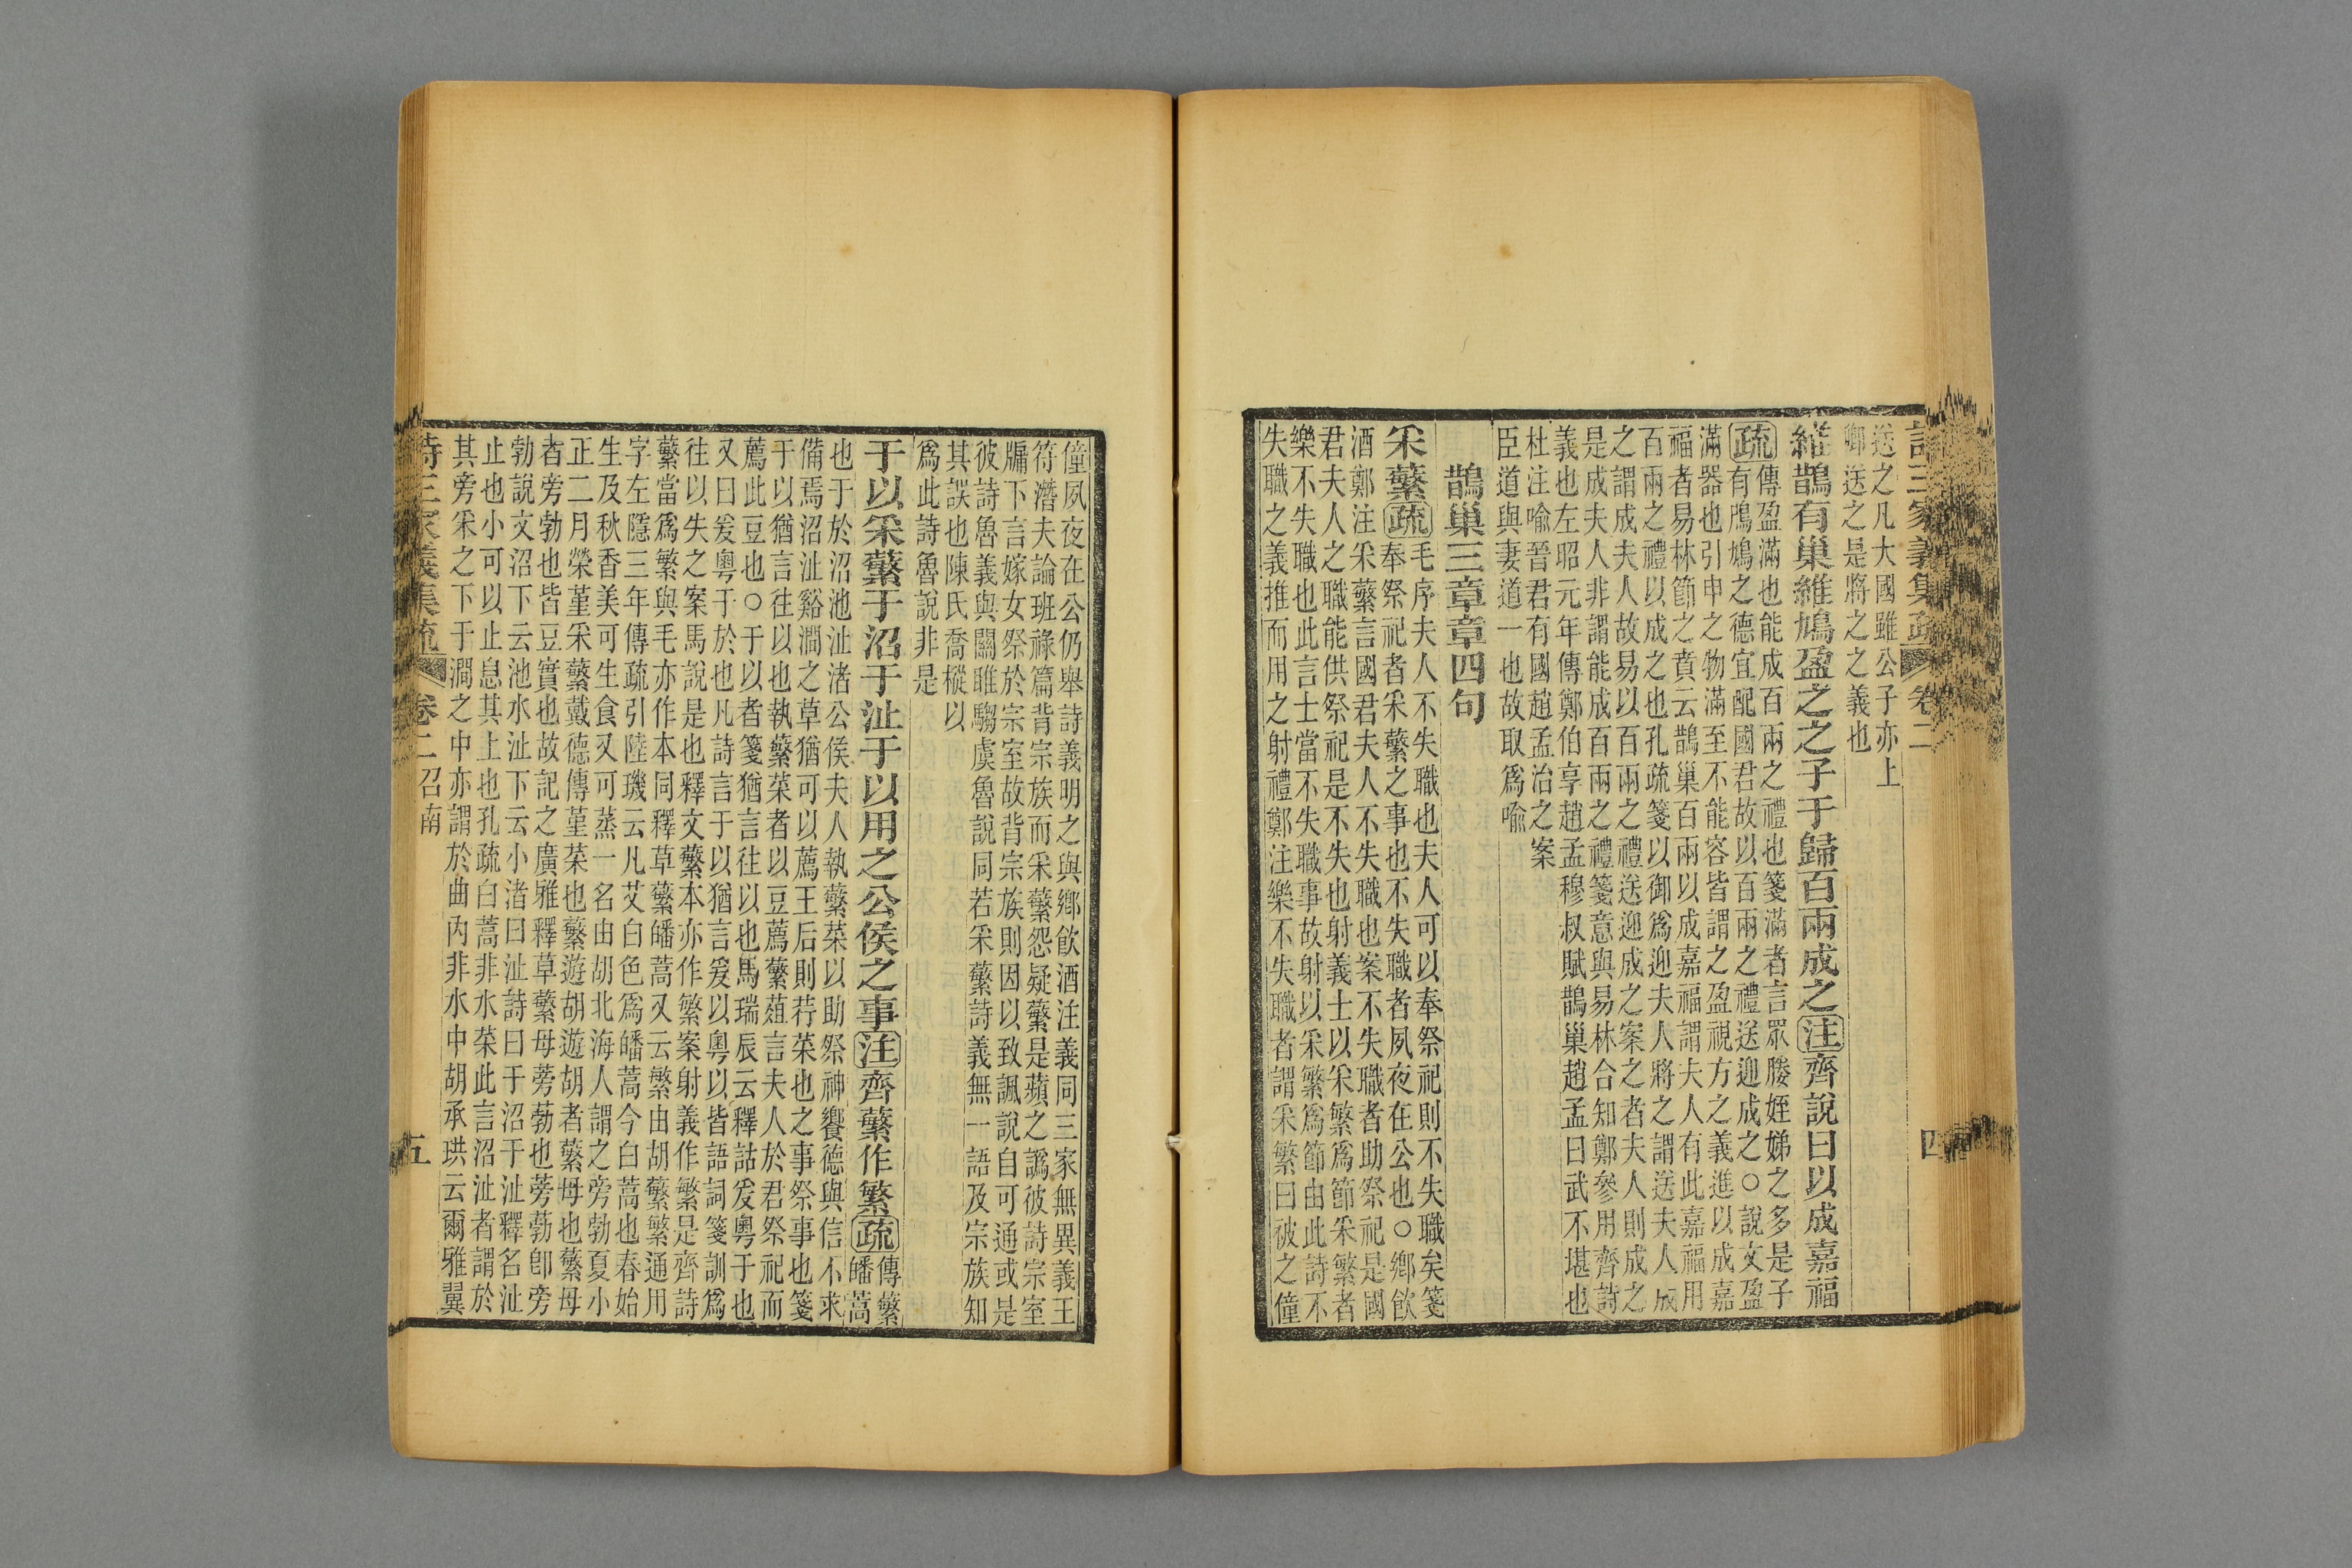 詩三家義集疏 卷二 四
送之凡大國雖公子亦上
卿送之是將之之義也
維鵲有巢維鳩盈之之子于歸百兩成之注齊說曰以成嘉福
疏傳盈滿也能成百兩之禮也箋滿者言眾媵姪娣之多是子
有鳲鳩之德宜配國君故以百兩之禮送迎成之○說文盈
滿器也引申之物滿至不能容皆謂之盈視方之義進以成嘉
福者易林節之賁云鵲巢百兩以成嘉福謂夫人有此嘉福用
百兩之禮以成之也孔疏箋以御爲迎夫人將之謂送夫人成
之謂成夫人故易以百兩之禮送迎成之案之者夫人則成之
是成夫人非謂能成百兩之禮箋意與易林合知鄭參用齊詩
義也左昭元年傳鄭伯享趙孟穆叔賦鵲巢趙孟曰武不堪也
杜注喻晉君有國趙孟治之案
臣道與妻道一也故取爲喻
鵲巢三章章四句
采蘩疏毛序夫人不失職也夫人可以奉祭祀則不失職矣箋
奉祭祀者采蘩之事也不失職者夙夜在公也○鄉飲
酒鄭注采蘩言國君夫人不失職也案不失職者助祭祀是國
君夫人之職能供祭祀是不失也射義士以采繁爲節采繁者
樂不失職也此言士當不失職事故射以采繁爲節由此詩不
失職之義推而用之射禮鄭注樂不失職者謂采繁曰被之僮
僮夙夜在公仍舉詩義明之與鄉飲酒注義同三家無異義王
符潛夫論班祿篇背宗族而采蘩怨疑蘩是蘋之譌彼詩宗室
牖下言嫁女祭於宗室故背宗族則因以致諷說自可通或是
彼詩魯義與關雎騶虞魯說同若采蘩詩義無一語及宗族知
其誤也陳氏喬樅以
爲此詩魯說非是
于以采蘩于沼于沚于以用之公侯之事注齊蘩作繁疏傳蘩
皤蒿
也于於沼池沚渚公侯夫人執蘩菜以助祭神饗德與信不求
備焉沼沚谿澗之草猶可以薦王后則荇菜也之事祭事也箋
于以猶言往以也執蘩菜者以豆薦蘩菹言夫人於君祭祀而
薦此豆也○于以者箋猶言往以也馬瑞辰云釋詁爰粵于也
又曰爰粵于於也凡詩言于以猶言爰以粵以皆語詞箋訓爲
往以失之案馬說是也釋文蘩本亦作繁案射義作繁是齊詩
蘩當爲繁與毛亦作本同釋草蘩皤蒿又云繁由胡蘩繁通用
字左隱三年傳疏引陸璣云凡艾白色爲皤蒿今白蒿也春始
生及秋香美可生食又可蒸一名由胡北海人謂之旁勃夏小
正二月榮菫采蘩戴德傳菫菜也蘩遊胡遊胡者蘩母也蘩母
者旁勃也皆豆實也故記之廣雅釋草蘩母蒡葧也蒡葧卽旁
勃說文沼下云池水沚下云小渚曰沚詩曰于沼于沚釋名沚
止也小可以止息其上也孔疏白蒿非水菜此言沼沚者謂於
其旁采之下于澗之中亦謂於曲內非水中胡承珙云爾雅翼
詩三家義集疏 卷二 召南 五